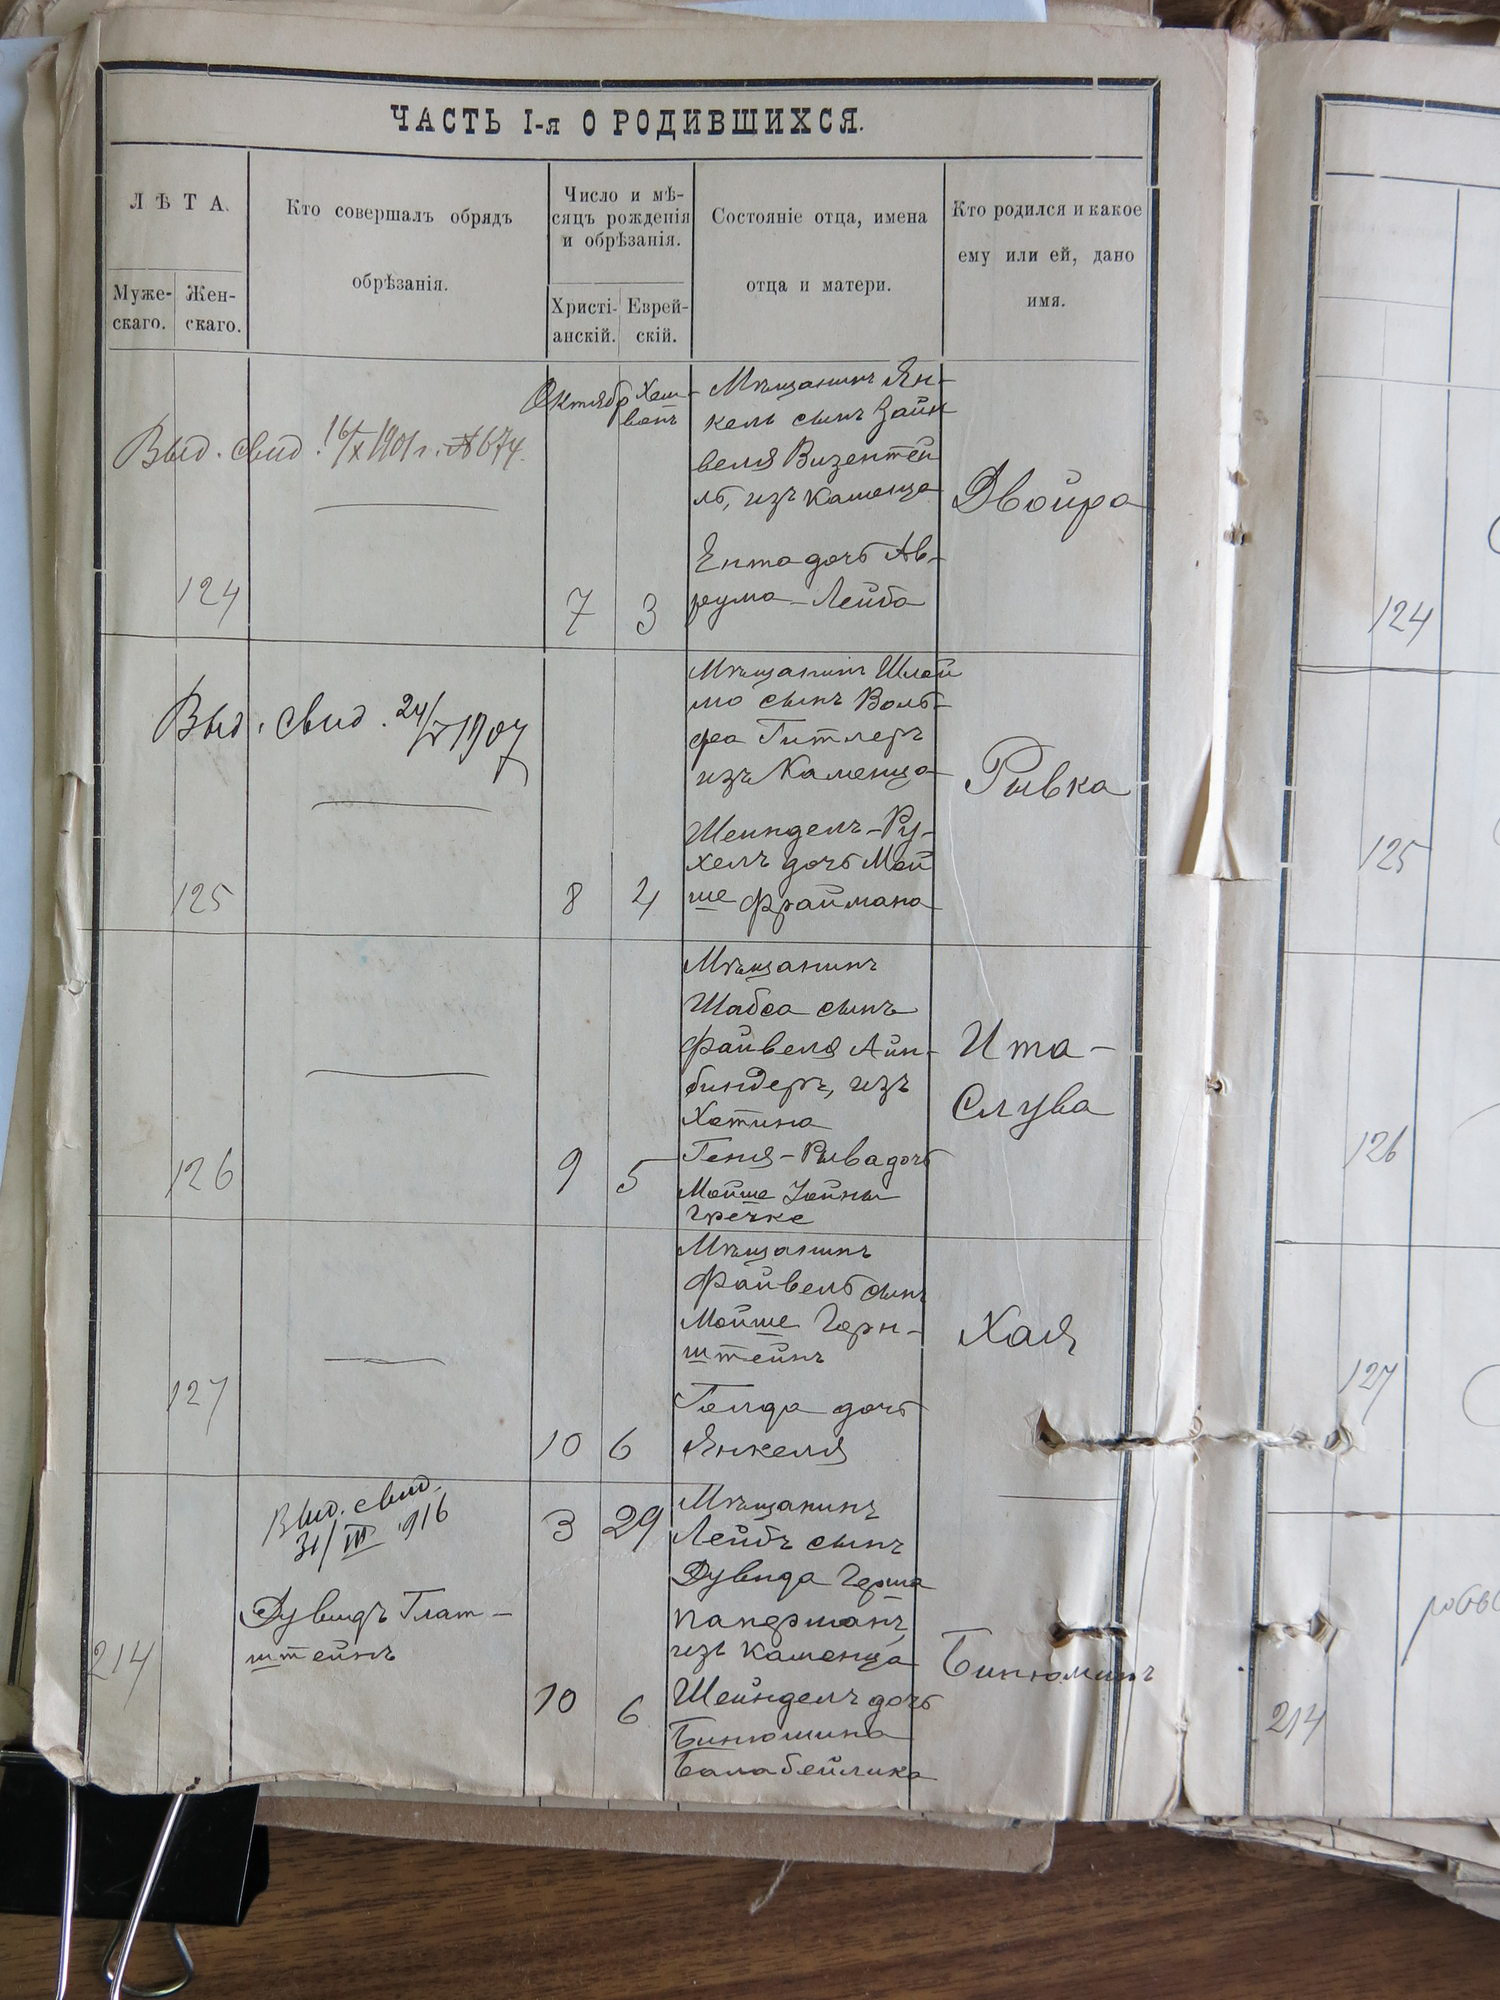 ЧАСТЬ I-я О РОДИВШИХСЯ.
ЛѢТА.
Муже-
скаго.
Жен-
скаго.
Кто совершалъ обрядъ
обрѣзанія.
Число и мѣ-
сяцъ рожденія
и обрѣзанія.
Христі-
анскій.
Еврей-
скій.
Состояніе отца, имена
отца и матери.
Кто родился и какое
ему или ей, дано
имя.
Выд. свид. 16/X 1901 г. № 674.
124
Октябр
7
Хеш-
вонъ
3
Мѣщанинъ Ян-
кель сынъ Зайн
веля Визентей
ль, изъ Каменца
Ента дочь Ав-
рума-Лейба
Двойра
Выд. свид. 24/V 1907
125
8
4
Мѣщанинъ Шлой
мо сынъ Воль-
фа Гитлеръ
изъ Каменца
Шейнделъ-Ру-
хелъ дочь Мой
ше Фраймана
Рывка
126
9
5
Мѣщанинъ
Шабса сынъ
Файвеля Айн-
биндеръ, изъ
Хотина
Геня-Рыва дочь
Мойше
Гречке
Ита-
Слува
127
10
6
Мѣщанинъ
Файвель сынъ
Мойше Горн-
штейнъ
Голда дочь
Янкеля
Хая
Выд. свид.
31/III 1916
214
Дувидъ Глат-
штейнъ
3
29
10
6
Мѣщанинъ
Лейбъ сынъ
Дувида Герша
Паперманъ,
изъ Каменца
Шейнделъ дочь
Бинюмина
Балабейлика
Бинюминъ
124
125
126
127
214